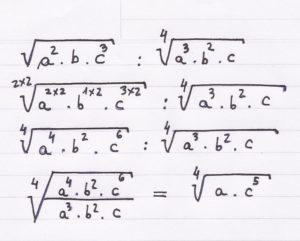 √(a² · b · c³) : ⁴√(a³ · b² · c)
²ˣ²√(a²ˣ² · b¹ˣ² · c³ˣ²) : ⁴√(a³ · b² · c)
⁴√(a⁴ · b² · c⁶) : ⁴√(a³ · b² · c)
⁴√((a⁴ · b² · c⁶)/(a³ · b² · c)) = ⁴√(a · c⁵)